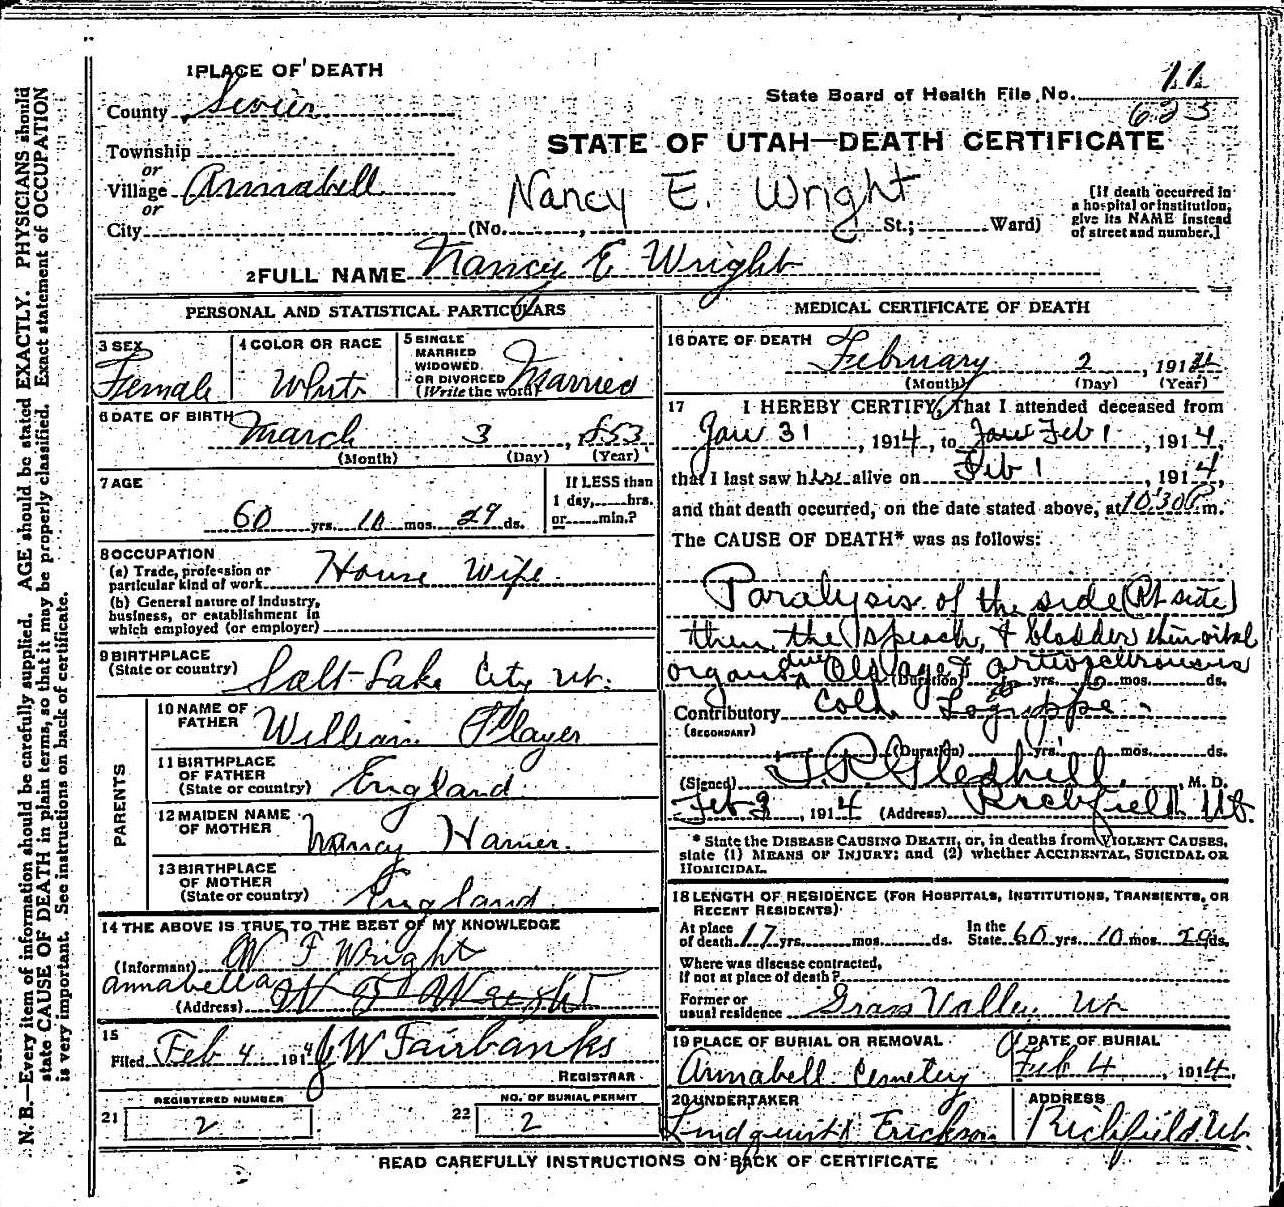 1 PLACE OF DEATH
County Sevier
State Board of Health File No. 11
623
Township
or
Village Annabell
or
City
STATE OF UTAH—DEATH CERTIFICATE
Nancy E. Wright
(No. , St.; Ward)
[If death occurred in
a hospital or institution,
give its NAME instead
of street and number.]
2 FULL NAME Nancy E Wright
PERSONAL AND STATISTICAL PARTICULARS
3 SEX
Female
4 COLOR OR RACE
White
5 SINGLE
MARRIED
WIDOWED
OR DIVORCED
(Write the word)
Married
6 DATE OF BIRTH
March 3, 1853
(Month) (Day) (Year)
7 AGE
60 yrs. 10 mos. 29 ds.
If LESS than
1 day, hrs.
or min.?
8 OCCUPATION
(a) Trade, profession or
particular kind of work House Wife
(b) General nature of industry,
business, or establishment in
which employed (or employer)
9 BIRTHPLACE
(State or country) Salt-Lake City Ut.
PARENTS
10 NAME OF
FATHER William Player
11 BIRTHPLACE
OF FATHER
(State or country) England
12 MAIDEN NAME
OF MOTHER Nancy Hamer
13 BIRTHPLACE
OF MOTHER
(State or country) England
14 THE ABOVE IS TRUE TO THE BEST OF MY KNOWLEDGE
(Informant) W F Wright
Annabella
(Address) W F Wright
15
Filed Feb 4 1914 J W Fairbanks
REGISTRAR
21 REGISTERED NUMBER
2
22 NO. OF BURIAL PERMIT
2
MEDICAL CERTIFICATE OF DEATH
16 DATE OF DEATH
February 2, 1914
(Month) (Day) (Year)
17 I HEREBY CERTIFY, That I attended deceased from
Jan 31, 1914, to Jan Feb 1, 1914,
that I last saw her alive on Feb 1, 1914,
and that death occurred, on the date stated above, at 10:30 P. m.
The CAUSE OF DEATH* was as follows:
Paralysis of the side (Rt side)
then the speach, & bladder then vital
organs due Old age &
(Duration) yrs. mos. ds.
Contributory Cold Lagrippe
(SECONDARY)
(Duration) yrs. mos. ds.
(Signed) J. R. Gledhill, M. D.
Feb 3, 1914 (Address) Richfield Ut.
* State the DISEASE CAUSING DEATH, or, in deaths from VIOLENT CAUSES,
state (1) MEANS OF INJURY; and (2) whether ACCIDENTAL, SUICIDAL OR
HOMICIDAL.
18 LENGTH OF RESIDENCE (FOR HOSPITALS, INSTITUTIONS, TRANSIENTS, OR
RECENT RESIDENTS)
At place
of death 17 yrs. mos. ds.
In the
State 60 yrs. 10 mos. 29 ds.
Where was disease contracted,
if not at place of death?
Former or
usual residence Grass Valley Ut
19 PLACE OF BURIAL OR REMOVAL
Annabell Cemetery
DATE OF BURIAL
Feb 4, 1914.
20 UNDERTAKER
Lindquist & Erickson
ADDRESS
Richfield Ut.
READ CAREFULLY INSTRUCTIONS ON BACK OF CERTIFICATE
N. B.—Every item of information should be carefully supplied. AGE should be stated EXACTLY. PHYSICIANS should
state CAUSE OF DEATH in plain terms, so that it may be properly classified. Exact statement of OCCUPATION
is very important. See instructions on back of certificate.